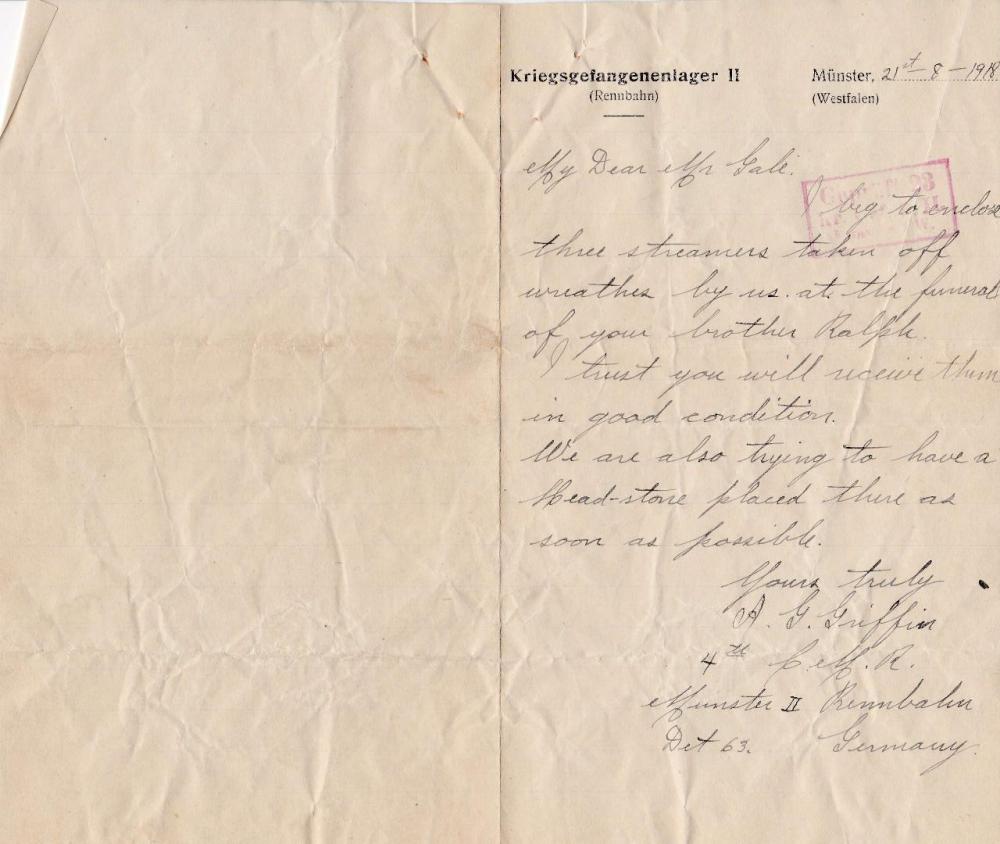 Kriegsgefangenenlager II
(Rennbahn)
Münster, 21st – 8 – 1918
(Westfalen)
My Dear Mr Gale.
I beg to enclose
three streamers taken off
wreathes by us. at. the funeral
of your brother Ralph.
I trust you will receive them
in good condition.
We are also trying to have a
Head-stone placed there as
soon as possible.
Yours truly
A. G. Griffin
4th C. M. R.
Munster II Rennbahn
Det 63. Germany.